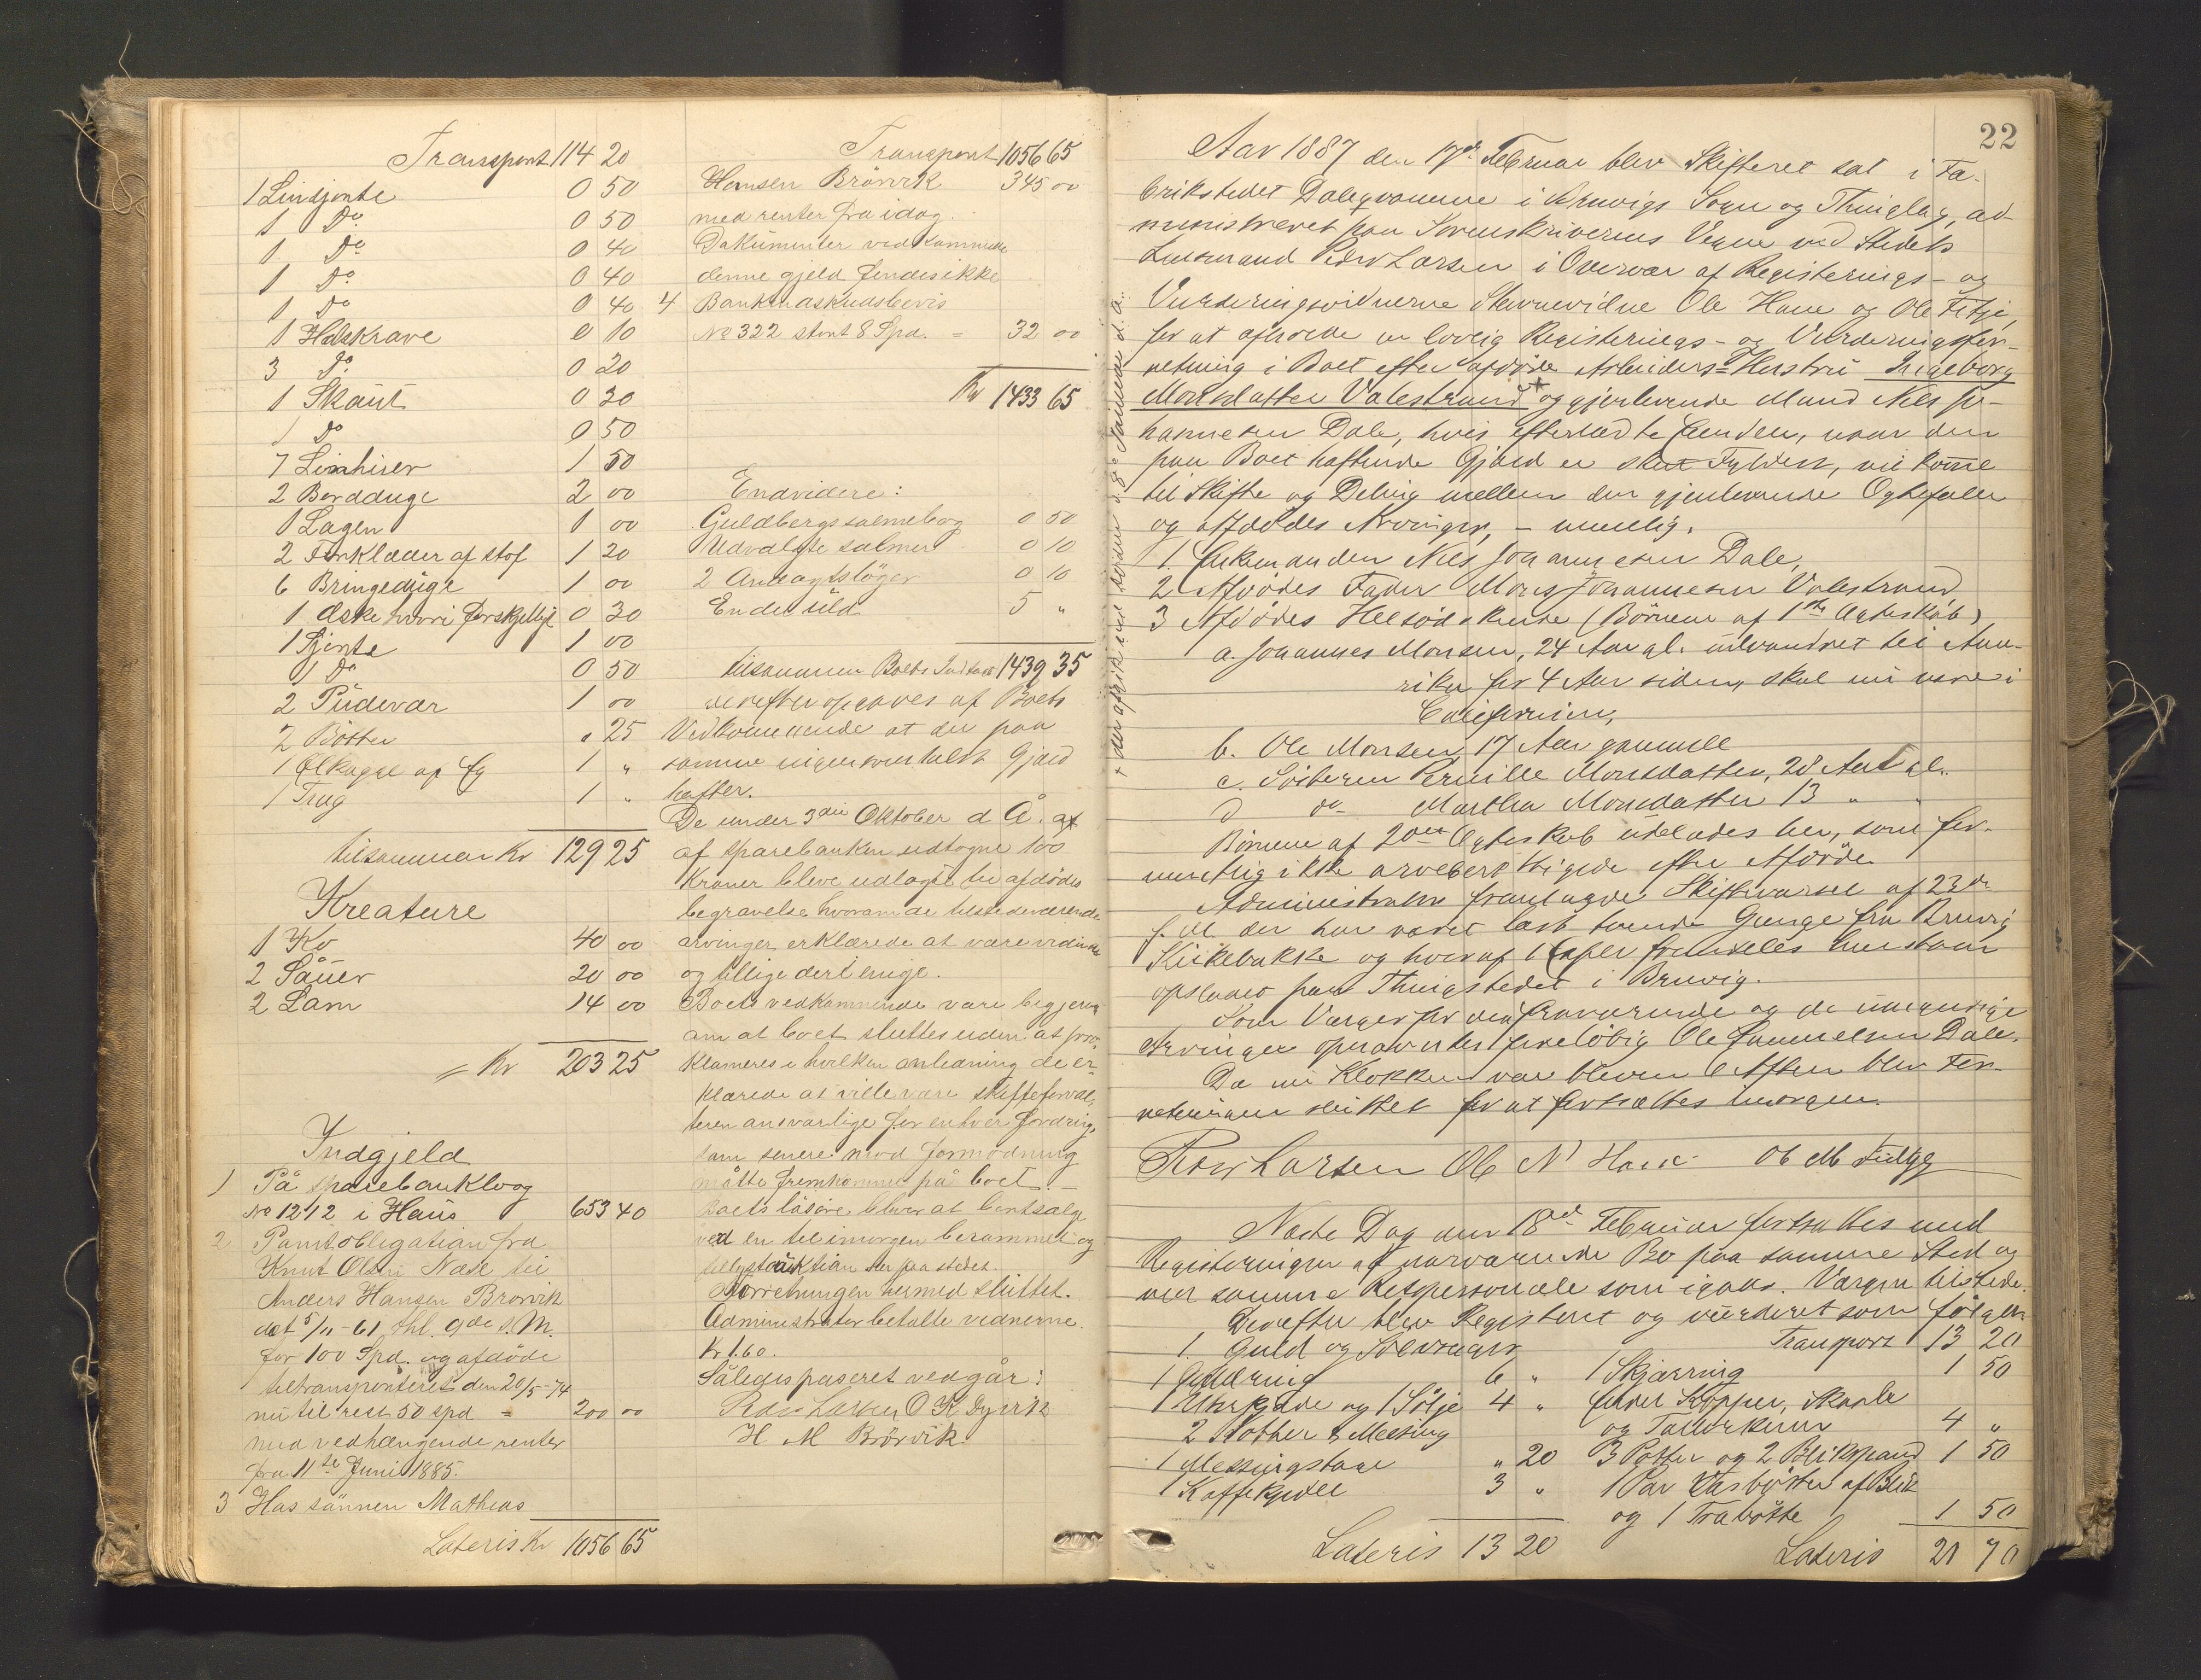 Transport 114 20
1 Lindjonte 0 50
1 Do 0 50
1 Do 0 40
1 Do 0 40
1 Do 0 40
1 Halskrave 0 10
3 Do 0 20
1 Skaut 0 30
1 Do 0 50
7 Linhuer 1 50
2 Bordduge 2 00
1 Lagen 1 00
2 Forklæder af stof 1 20
6 Bringeduge 1 00
1 Æske hvori forskjelligt 0 30
1 Tjente 1 00
1 Do 0 50
2 Pudevar 1 00
2 Bötter " 25
1 Ølkagge og fg 1 "
1 Trug 1 "
tilsammen Kr 129 25
Kreature
1 Ko 40 00
2 Sauer 20 00
2 Lam 14 00
= Kr 203 25
Indgjeld
1) På sparebankbog
No 1212 i Haus 653 40
2 Pantobligation fra
Knut Olsen Nese til
Anders Hansen Brørvik
dat 5/11-61 thl. 9de s. M.
for 100 Spd. og afdöde
tiltransporteret den 20/5-74
nu til rest 50 spd = 200 00
med vedhængende renter
fra 11te Juni 1885.
3 Hos sönnen Mathias
Lateris Kr 1056 65
Transport 1056 65
Hansen Brörvik 345 00
med renter fra idag.
Dokumenter vedkommende
denne gjeld findes ikke
4 Bankindskudsbevis
No 322 stort 8 Spd. = 32 00
Kr 1433 65
Endvidere:
Guldbergs salmebog 0 50
Udvalgte salmer 0 10
2 Andagtsböger 0 10
En del uld 5 "
tilsammen Boets Indtægt 1439 35
derefter opgaves af Boets
Vedkommende at der paa
samme ingen somhelst Gjæld
hafter.
De under 3die Oktober d Å. af
af sparebanken udtagne 100
Kroner bleve udlagt til afdödes
begravelse hvorom de tilstedeværende
arvinger erklærede at være vidende
og tillige dert enige.
Boets vedkommende vare begjerende
om at boet sluttes uden at pro-
klameres i hvilken anledning de er-
klærede at ville være skifteforval-
teren ansvarlige for enhver fordring,
som senere mod formodning
måtte fremkomme på boet. –
Boets lösöre bliver at bortsælge
ved en til imorgen berammet og
tillyst auktion her paa stedet.
Forretningen hermed sluttet.
Administrator betalte vidnerne.
Kr 1.60.
Således passeret vedgår:
Peder Larsen O K Dyvik
H M Brörvik
22
Aar 1887 den 17de Februar blev Skifteret sat i Fa-
brikstedet Daleqvamene i Bruvigs Sogn og Thinglag, ad-
ministreret paa Sorenskriverens Vegne ved Stedets
Lensmand Peder Larsen i Overvær af Registerings- og
Vurderingsvidnerne Stevnevidne Ole Hane og Ole Fitje,
for at afholde en lovlig Registerings- og Vurderingsfor-
retning i Boet efter afdöde Arbeiders Hustru Ingeborg
Monsdatter Valestrand + og gjenlevende Mand Nils Jo-
hannesen Dale, hvis efterladte Eiendele, naar den
paa Boet heftende Gjæld er sket Fyldest, vil komme
til Skifte og Deling mellem den gjenlevende Ægtefælle
og Afdödes Arvinger, – nemlig:
1. Enkemanden Nils Johannesen Dale,
2 Afdödes Fader Mons Johannesen Valestrand
3 Afdödes Helsödskende (Börnene af 1ste Ægteskab)
a. Johannes Monsen, 24 Aar gl. udvandret til Ame-
rika for 4 Aar siden, skal nu være i
Californien,
b. Ole Monsen, 17 Aar gammell
c. Söstren Pernille Monsdatter, 20 Aar gl.
d do Martha Monsdatter 13 " "
Börnene af 2det Ægteskab udelades her, som for-
mentlig ikke arveberettigede efter Afdöde.
Administrator fremlagde Skiftevarsel af 23de
f. M. der har været læst tvende Gange fra Bruvig
Kirkebakke og hvoraf 1 Exepl fremdeles henstaar
opslaaet paa Thingstedet i Bruvig.
Som Værge for den fraværende og de umyndige
Arvinger opnævntes foreløbig Ole Samuelsen Dale.
Da nu Klokken var bleven 6 Aften blev For-
retningen sluttet for at fortsættes imorgen.
Peder Larsen Ole N Hane Ole M Fitje
Næste Dag den 18de Februar fortsattes med
Registeringen af nærværende Bo paa samme Sted og
med samme Retspersonale som igaar. Værgen tilstede.
Derefter blev Registeret og vurderet som fölger:
1. Guld og Sölvsager
1 Guldring 6 "
1 Uhrkjede og 1 Sölje 4 "
2 Kobber & Messing
1 Messingstage " 20
1 Kaffekjedel 3 "
Lateris 13 20
Transport 13 20
1 Skjærring 1 50
Endel Kopper, Skaale
og Tallerkener 4 "
3 Potter og 2 Blikspand 1 50
1 Par Vasbötter af Blik
og 1 Træbötte 1 50
Lateris 21 70